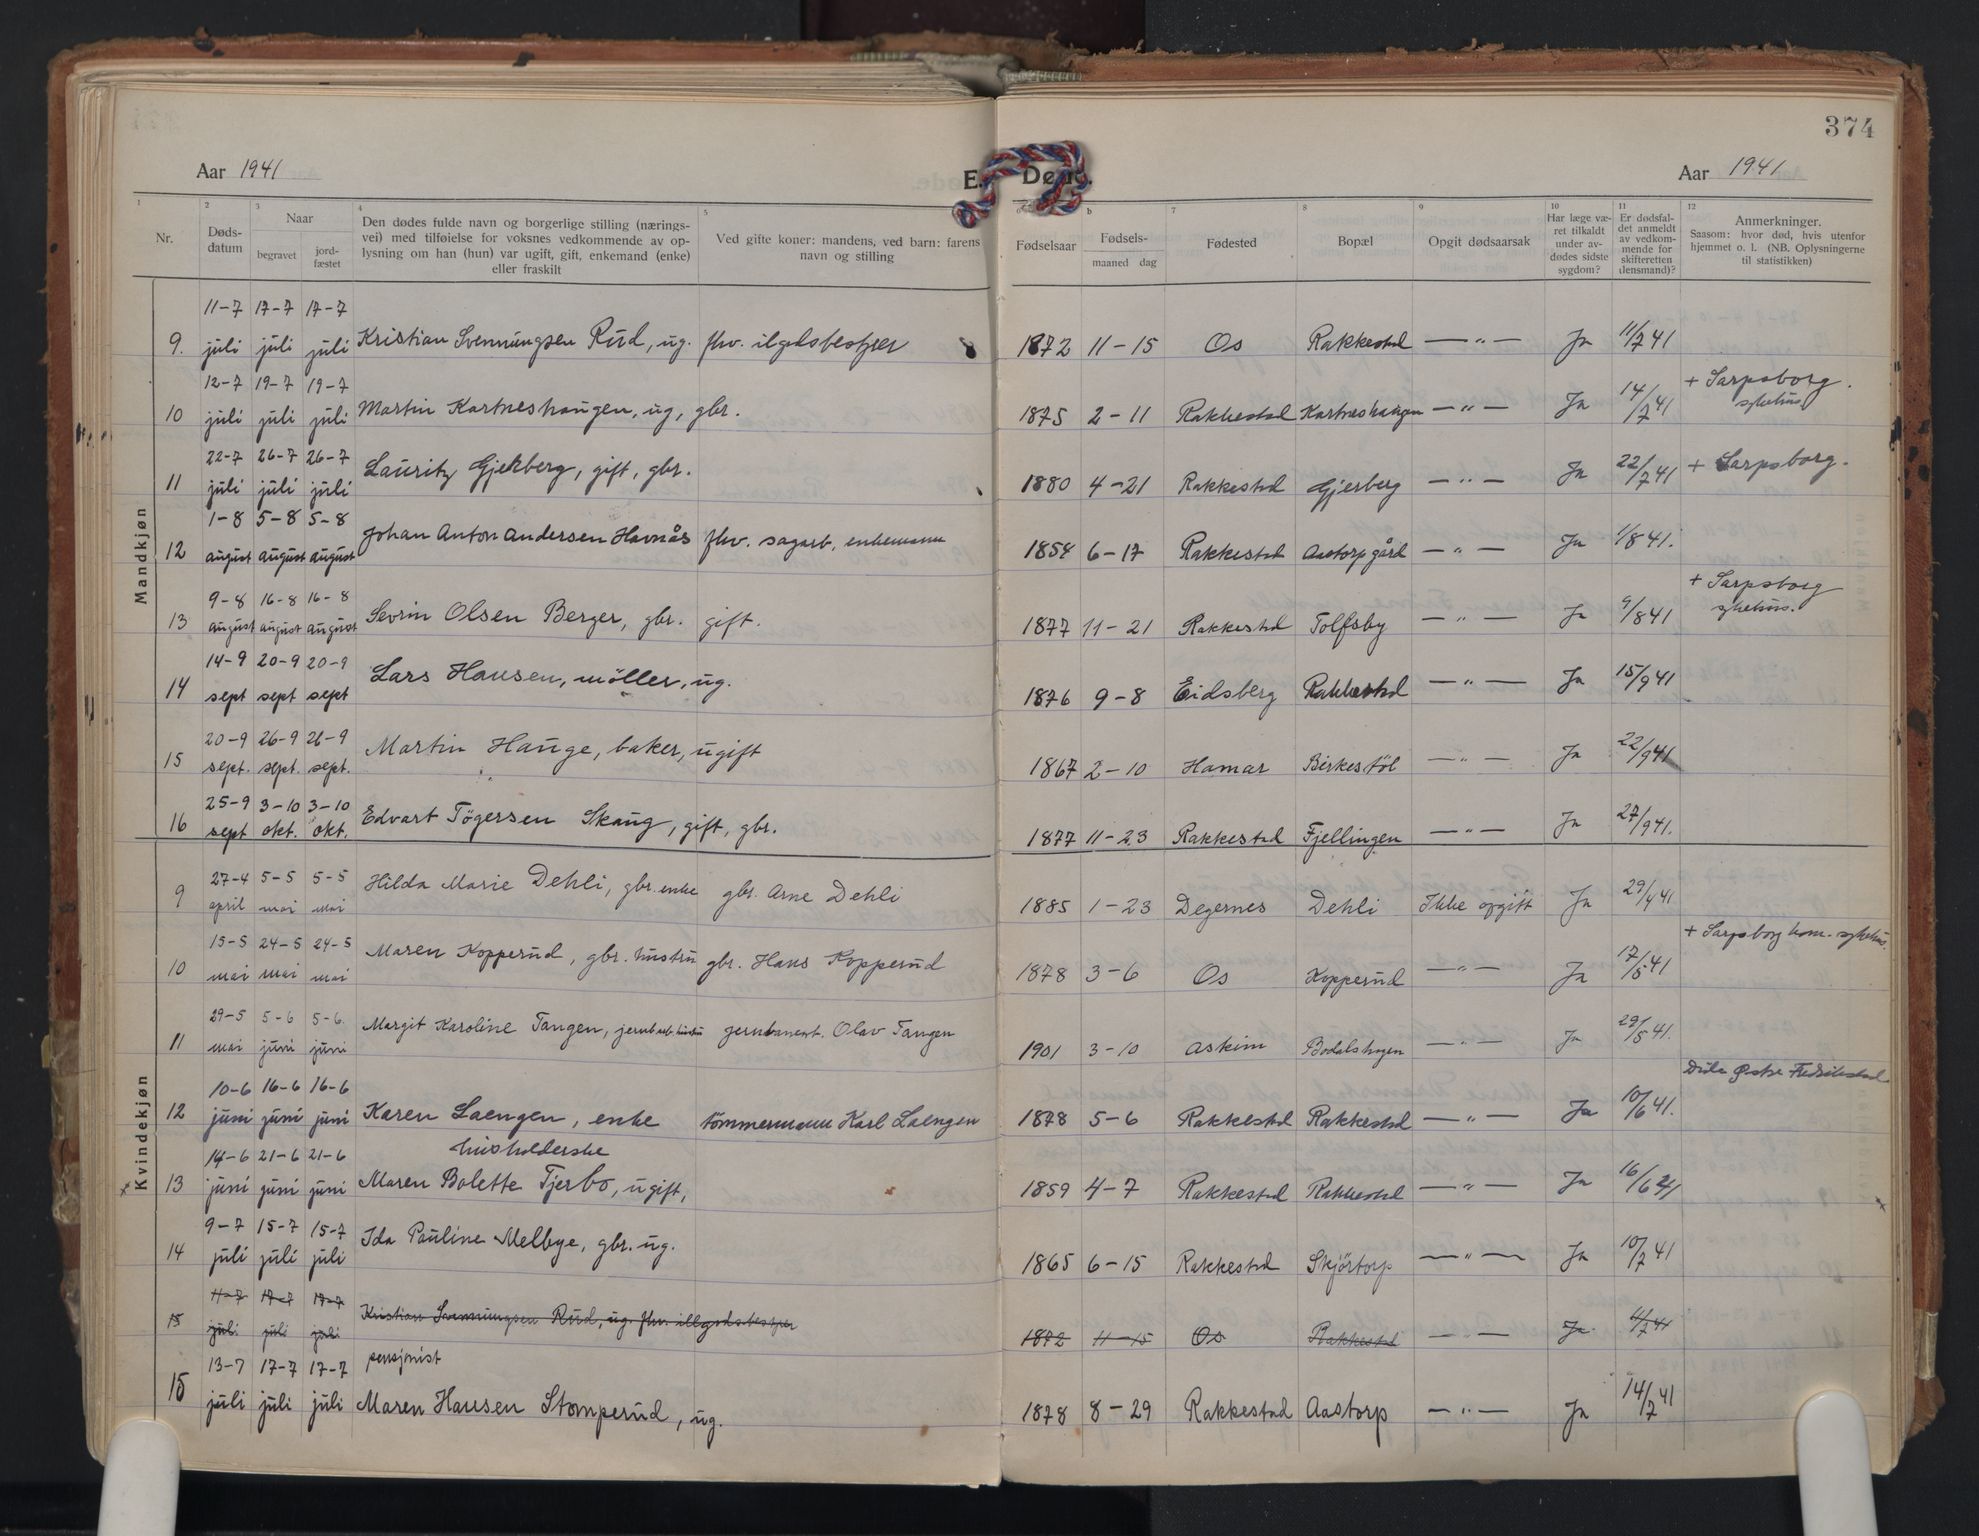 374
Aar 1941
E. Døde.
Aar 1941
1 2 3 4 5 6 b 7 8 9 10 11 12
Nr.
Døds-
datum
Naar
begravet
jord-
fæstet
Den dødes fulde navn og borgerlige stilling (nærings-
vei) med tilføielse for voksnes vedkommende av op-
lysning om han (hun) var ugift, gift, enkemand (enke)
eller fraskilt
Ved gifte koner: mandens, ved barn: farens
navn og stilling
Fødselsaar
Fødsels-
maaned dag
Fødested
Bopæl
Opgit dødsaarsak
Har læge væ-
ret tilkaldt
under av-
dødes sidste
sygdom?
Er dødsfal-
det anmeldt
av vedkom-
mende for
skifteretten
(lensmand)?
Anmerkninger.
Saasom: hvor død, hvis utenfor
hjemmet o. l. (NB. Oplysningerne
til statistikken)
Mandkjøn
11-7 17-7 17-7
9. juli juli juli Kristian Svennungsen Rud, ug. fhv. ilgodsbestyrer 1872 11-15 Os Rakkestad —"— Ja 11/7 41
12-7 19-7 19-7
10 juli juli juli Martin Kartneshaugen, ug, gbr. 1875 2-11 Rakkestad Kartneshaugen —"— Ja 14/7 41 + Sarpsborg.
sykehus.
22-7 26-7 26-7
11 juli juli juli Lauritz Gjerberg, gift, gbr. 1880 4-21 Rakkestad Gjerberg —"— Ja 22/7 41 + Sarpsborg.
1-8 5-8 5-8
12 august august august Johan Anton Andersen Havnås fhv. sagarb, enkemann 1854 6-17 Rakkestad Aastorp gård —"— Ja 1/8 41.
9-8 16-8 16-8
13 august august august Sevrin Olsen Berger, gbr. gift. 1877 11-21 Rakkestad Tolfsby —"— Ja 9/8 41 + Sarpsborg
sykehus.
14-9 20-9 20-9
14 sept sept sept Lars Hansen, møller, ug. 1876 9-8 Eidsberg Rakkestad —"— Ja 15/9 41
20-9 26-9 26-9
15 sept. sept. sept. Martin Hauge, baker, ugift 1867 2-10 Hamar Birkestøl —"— Ja 22/9 41
25-9 3-10 3-10
16 sept okt. okt. Edvart Tögersen Skaug, gift, gbr. 1877 11-23 Rakkestad Fjellingen —"— Ja 27/9 41.
Kvindekjøn
27-4 5-5 5-5
9 april mai mai Hilda Marie Dehli, gbr. enke gbr. Arne Dehli 1885 1-23 Degernes Dehli Ikke opgitt Ja 29/4 41
15-5 24-5 24-5
10 mai mai mai Maren Kopperud, gbr. hustru gbr. Hans Kopperud 1878 3-6 Os Kopperud —"— Ja 17/5 41 + Sarpsborg kom. sykehus.
29-5 5-6 5-6.
11 mai juni juni Margit Karoline Tangen, jernb.arb. hustru Olav Tangen 1901 3-10 Askim Bodalshagen —"— Ja 29/5 41.
10-6 16-6 16-6
12 juni juni juni Karen Laengen, enke tömmermann Karl Laengen 1878 5-6 Rakkestad Rakkestad —"— Ja 10/6 41. Östre Fredrikstad
14-6 21-6 21-6 husholderske
13 juni juni juni Maren Bolette Tjerbo, ugift, 1859 4-7 Rakkestad Rakkestad —"— Ja 16/6 41
9-7 15-7 15-7
14 juli juli juli Ida Pauline Melbye, gbr. ug. 1865 6-15 Rakkestad Skjörtorp —"— Ja 10/7 41
11-7 17-7 17-7
15 juli juli juli Kristian Svennungsen Rud, ug. fhv. illgodsbestyrer 1872 11-15 Os Rakkestad —"— Ja 11/7 41
13-7 17-7 17-7 pensjonist
15 juli juli juli Maren Hansen Stomperud, ug. 1878 8-29 Rakkestad Aastorp —"— Ja 14/7 41